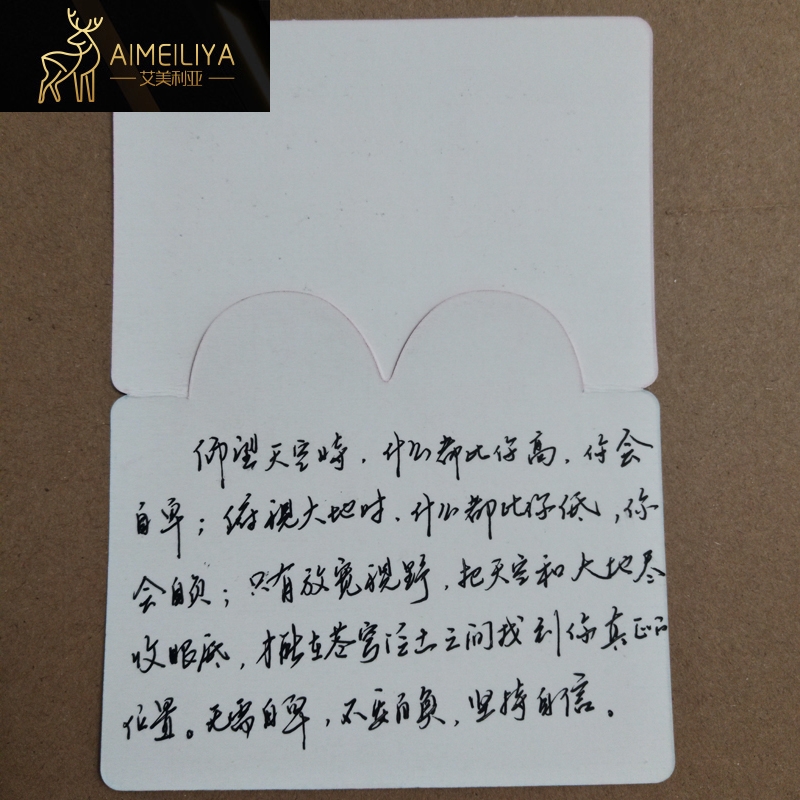 AIMEILIYA
艾美利亚
仰望天空时,什么都比你高,你会
自卑;俯视大地时,什么都比你低,你
会自负;只有放宽视野,把天空和大地尽
收眼底,才能在苍穹泛土之间找到你真正的
位置。无需自卑,不要自负,坚持自信。